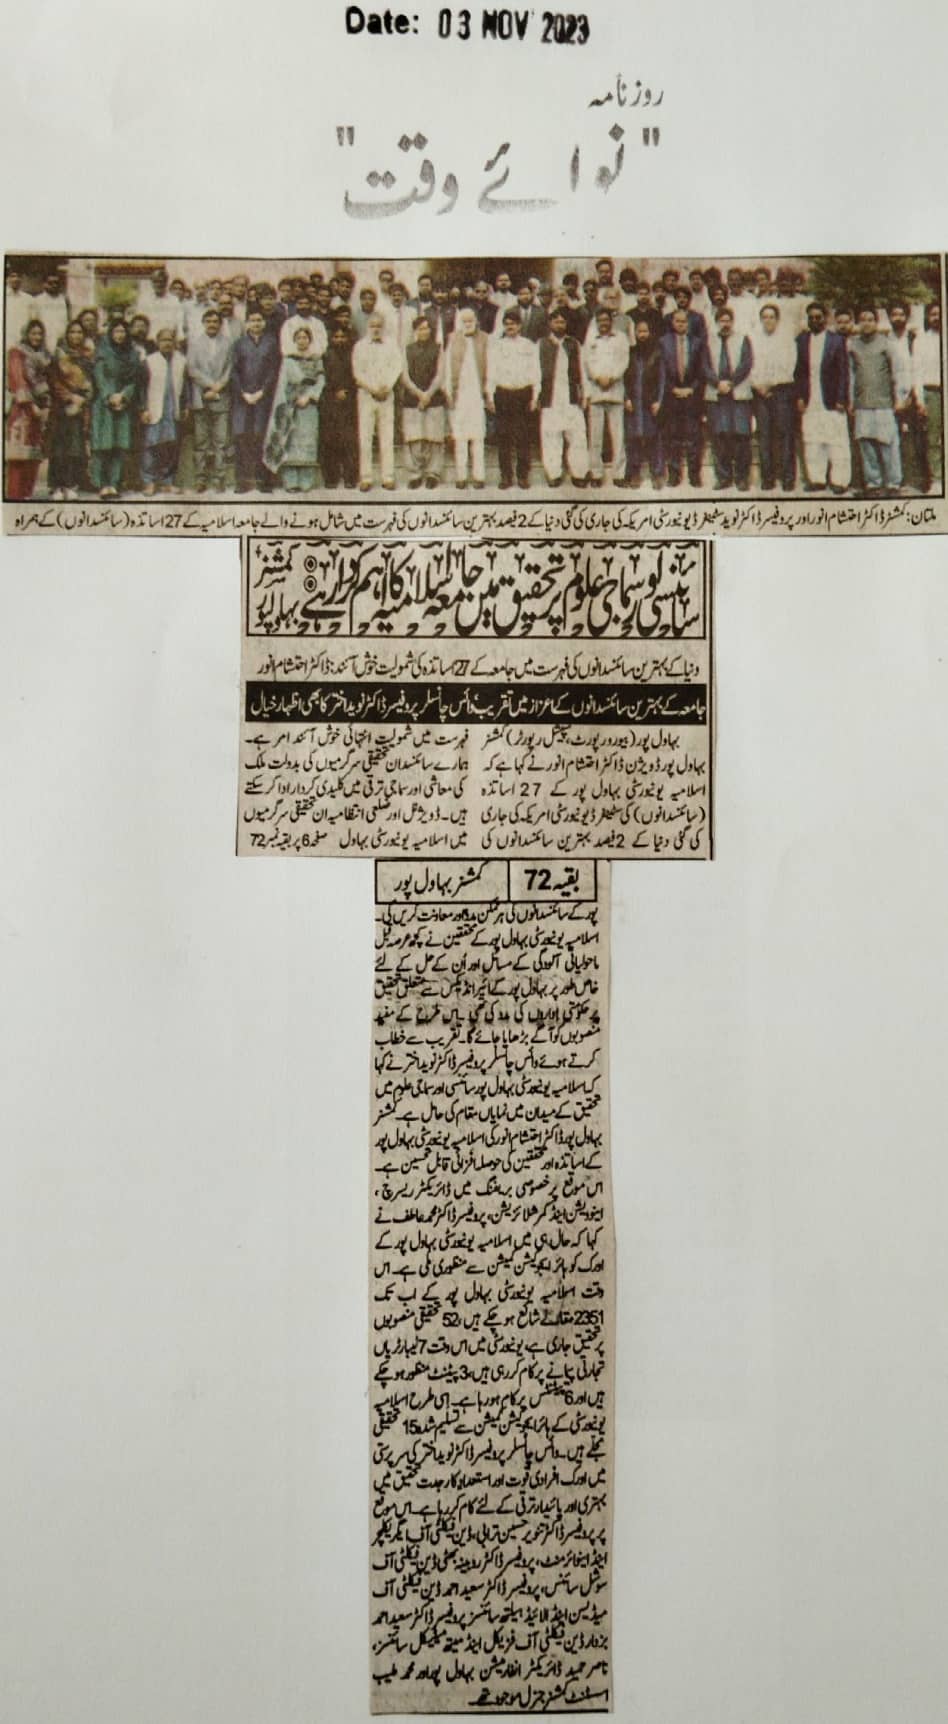 Date: 03 NOV 2023
روزنامہ
"نوائے وقت"
ملتان: کمشنر ڈاکٹر احتشام انور اور پروفیسر ڈاکٹر نوید سٹینفرڈ یونیورسٹی امریکہ کی جاری کی گئی دنیا کے 2 فیصد بہترین سائنسدانوں کی فہرست میں شامل ہونے والے جامعہ اسلامیہ کے 27 اساتذہ (سائنسدانوں) کے ہمراہ
سائنسی اور سماجی علوم پر تحقیق میں جامعہ اسلامیہ کا اہم کردار ہے: کمشنر بہاولپور
دنیا کے بہترین سائنسدانوں کی فہرست میں جامعہ کے 27 اساتذہ کی شمولیت خوش آئند: ڈاکٹر احتشام انور
جامعہ کے بہترین سائنسدانوں کے اعزاز میں تقریب، وائس چانسلر پروفیسر ڈاکٹر نوید اختر کا بھی اظہار خیال
بہاول پور (بیورو رپورٹ، سپیشل رپورٹر) کمشنر
بہاول پور ڈویژن ڈاکٹر احتشام انور نے کہا ہے کہ
اسلامیہ یونیورسٹی بہاول پور کے 27 اساتذہ
(سائنسدانوں) کی سٹینفرڈ یونیورسٹی امریکہ کی جاری
کی گئی دنیا کے 2 فیصد بہترین سائنسدانوں کی
فہرست میں شمولیت انتہائی خوش آئند امر ہے۔
ہمارے سائنسدان تحقیقی سرگرمیوں کی بدولت ملک
کی معاشی اور سماجی ترقی میں کلیدی کردار ادا کر سکتے
ہیں۔ ڈویژنل اور ضلعی انتظامیہ ان تحقیقی سرگرمیوں
میں اسلامیہ یونیورسٹی بہاول صفحہ 6 پر بقیہ نمبر 72
بقیہ 72 کمشنر بہاول پور
پور کے سائنسدانوں کی ہر ممکن مدد اور معاونت کریں گی۔
اسلامیہ یونیورسٹی بہاول پور کے محققین نے کچھ عرصہ قبل
ماحولیاتی آلودگی کے مسائل اور اُن کے حل کے لئے
خاص طور پر بہاول پور کے ائیر انڈیکس سے متعلق تحقیق
پر حکومتی اداروں کی مدد کی تھی۔ اس طرح کے مفید
منصوبوں کو آگے بڑھایا جائے گا۔ تقریب سے خطاب
کرتے ہوئے وائس چانسلر پروفیسر ڈاکٹر نوید اختر نے کہا
کہ اسلامیہ یونیورسٹی بہاول پور سائنسی اور سماجی علوم میں
تحقیق کے میدان میں نمایاں مقام کی حامل ہے۔ کمشنر
بہاول پور ڈاکٹر احتشام انور کی اسلامیہ یونیورسٹی بہاول پور
کے اساتذہ اور محققین کی حوصلہ افزائی قابل تحسین ہے۔
اس موقع پر خصوصی بریفنگ میں ڈائریکٹر ریسرچ،
اینوویشن اینڈ کمرشلائزیشن، پروفیسر ڈاکٹر محمد عاطف نے
کہا کہ حال ہی میں اسلامیہ یونیورسٹی بہاول پور کے
اورک کو ہائر ایجوکیشن کمیشن سے منظوری ملی ہے۔ اس
وقت اسلامیہ یونیورسٹی بہاول پور کے اب تک
2351 مقالے شائع ہو چکے ہیں، 52 تحقیقی منصوبوں
پر تحقیق جاری ہے، یونیورسٹی میں اس وقت 7 لیبارٹریاں
تجارتی پیمانے پر کام کر رہی ہیں، 3 پیٹنٹ منظور ہو چکے
ہیں اور 6 پیٹنٹس پر کام ہو رہا ہے۔ اسی طرح اسلامیہ
یونیورسٹی کے ہائر ایجوکیشن کمیشن سے تسلیم شدہ 15 تحقیقی
مجلے ہیں۔ وائس چانسلر پروفیسر ڈاکٹر نوید اختر کی سرپرستی
میں اورک افرادی قوت اور استعداد کار جدت تحقیق میں
بہتری اور پائیدار ترقی کے لئے کام کر رہا ہے۔ اس موقع
پر پروفیسر ڈاکٹر تنویر حسین ترابی، ڈین فیکلٹی آف ایگریکلچر
اینڈ انوائرمنٹ، پروفیسر ڈاکٹر روبینہ بھٹی ڈین فیکلٹی آف
سوشل سائنس، پروفیسر ڈاکٹر سعید احمد ڈین فیکلٹی آف
میڈیسن اینڈ الائیڈ ہیلتھ سائنسز پروفیسر ڈاکٹر سعید احمد
بزدار ڈین فیکلٹی آف فزیکل اینڈ میتھ میٹیکل سائنسز،
ناصر حمید ڈائریکٹر انفارمیشن بہاول پور اور محمد طیب
اسسٹنٹ کمشنر جنرل موجود تھے۔